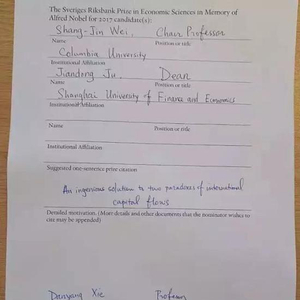 The Sveriges Riksbank Prize in Economic Sciences in Memory of
Alfred Nobel for 2017 candidate(s):
Shang-Jin Wei, Chair Professor
Name Position or title
Columbia University
Institutional Affiliation
Jiandong Ju, Dean
Name Position or title
Shanghai University of Finance and Economics
Institutional Affiliation
Name Position or title
Institutional Affiliation
Suggested one-sentence prize citation
An ingenious solution to two paradoxes of international
capital flows
Detailed motivation. (More details and other documents that the nominator wishes to
cite may be appended)
Danyang Xie Professor